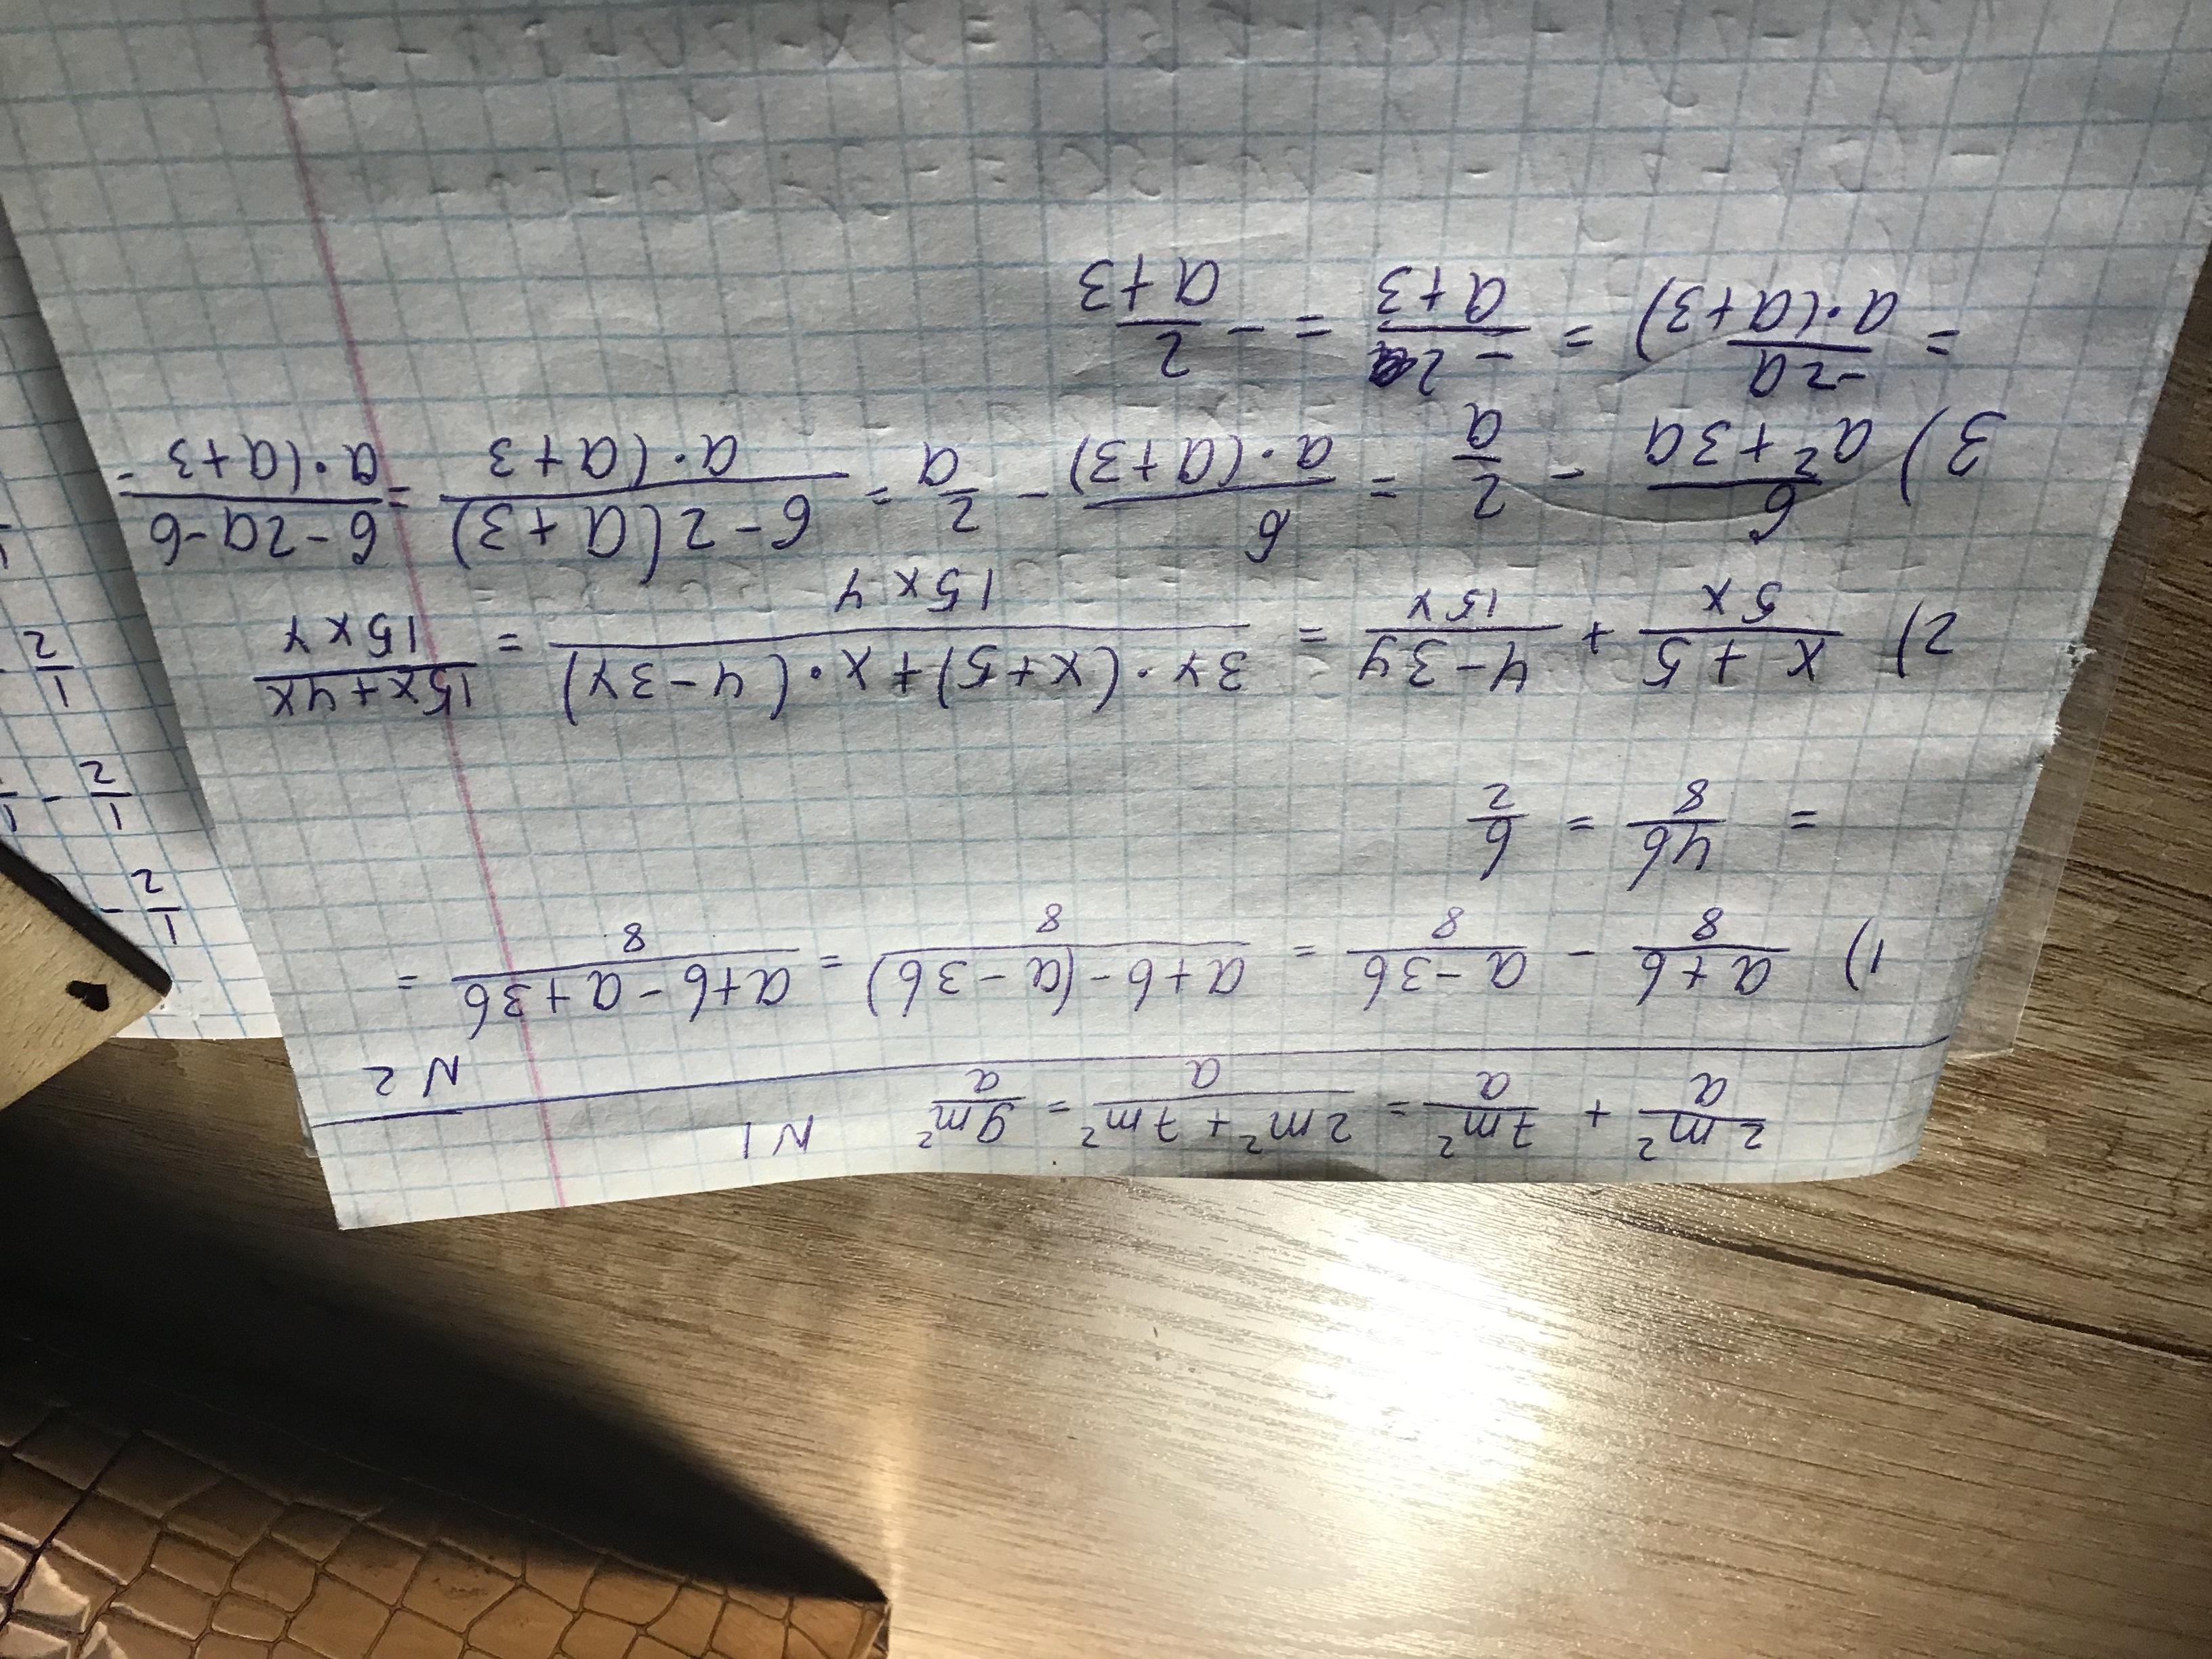 2m²/a + 7m²/a = 2m²+7m²/a = 9m²/a N1
N2
1) a+b/8 - a-3b/8 = a+b-(a-3b)/8 = a+b-a+3b/8 =
= 4b/8 = b/2
2) x+5/5x + 4-3y/15y = 3y·(x+5)+x·(4-3y)/15xy = 15x+4x/15xy
3) 6/a²+3a - 2/a = 6/a·(a+3) - 2/a = 6-2(a+3)/a·(a+3 = 6-2a-6/a·(a+3 =
= -2a/a·(a+3) = -2/a+3 = - 2/a+3
1/2 -
1/2 - 1
1/2